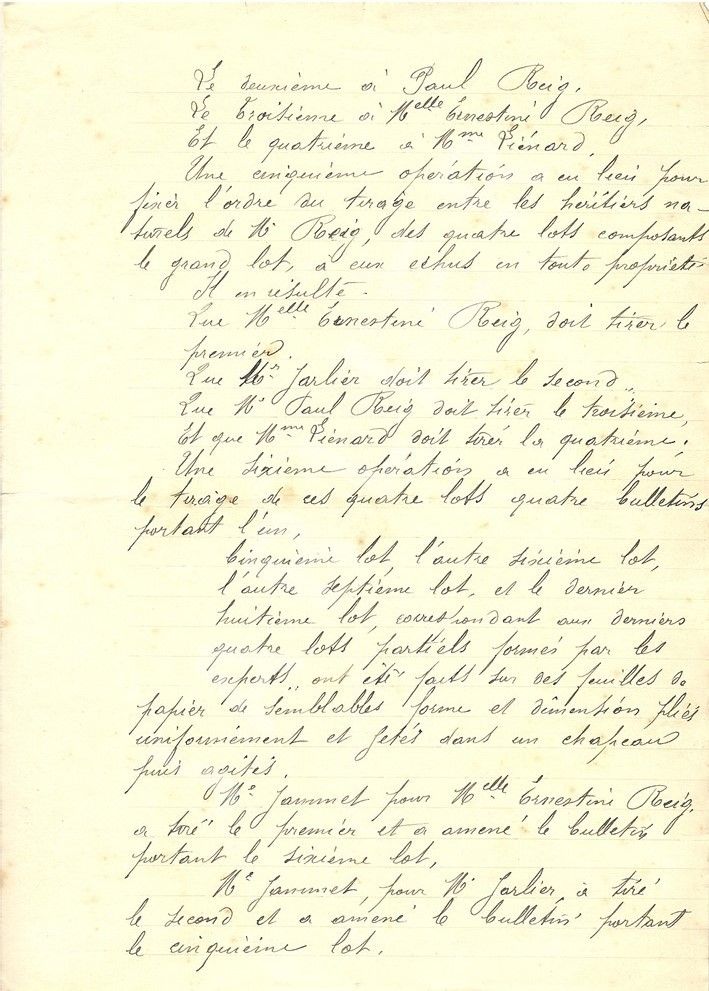 Le deuxième à Paul Reig,
Le Troisième à Melle Ernestine Reig,
Et le quatrième à Mme Liénard,
Une cinquième opération a eu lieu pour
fixer l'ordre du tirage entre les héritiers na-
turels de Mr Reig, des quatre lots composants
le grand lot, à eux échus en toute propriété
Il en résulte.
Que Melle Ernestine Reig, doit tirer le
premier.
Que Mr Jarlier doit tirer le second,
Que Mr Paul Reig doit tirer le troisième,
Et que Mme Liénard doit tirer la quatrième.
Une sixième opération a eu lieu pour
le tirage de ces quatre lots quatre bulletins
portant l'un,
Cinquième lot, l'autre sixième lot,
l'autre septième lot, et le dernier
huitième lot, correspondant aux derniers
quatre lots partiels formés par les
experts, ont été faits sur des feuilles de
papier de semblables forme et dimension pliés
uniformément et jetés dans un chapeau
puis agités.
Me Jammet pour Melle Ernestine Reig,
a tiré le premier et a amené le bulletin
portant le sixième lot,
Me Jammet, pour Mr Jarlier, a tiré
le second et a amené le bulletin portant
le cinquième lot.